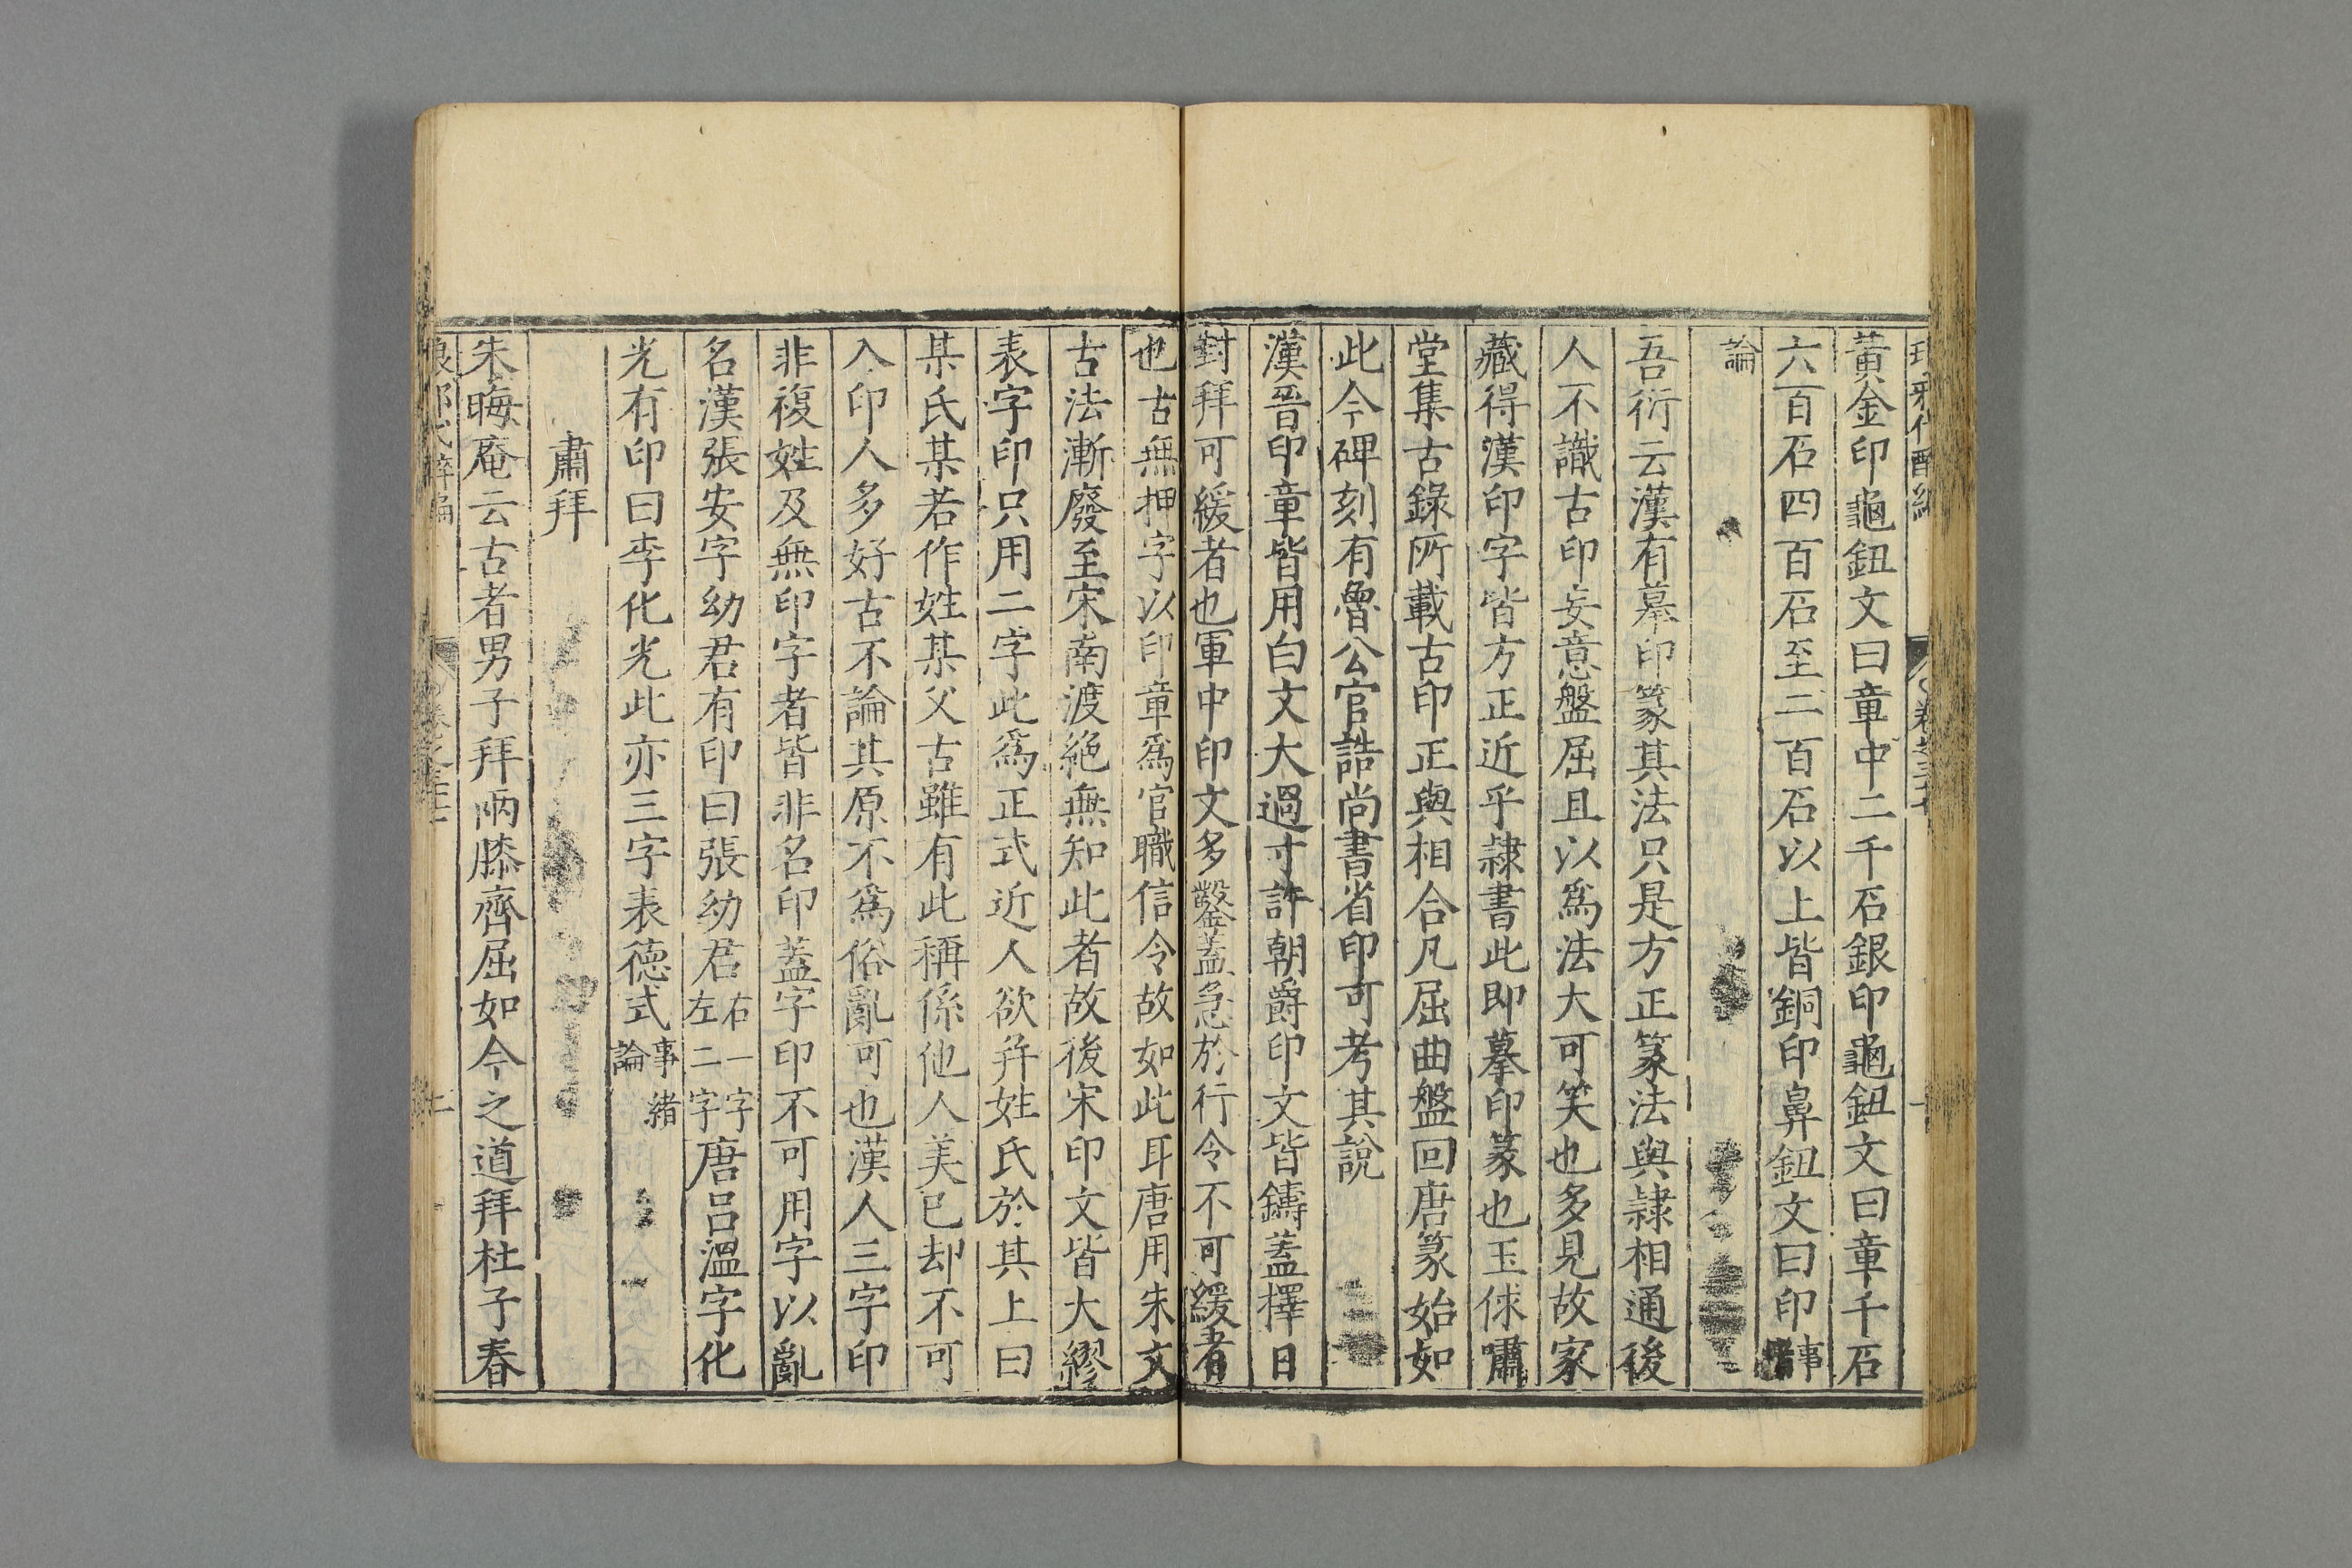 黃金印龜鈕文曰章中二千石銀印龜鈕文曰章千石
六百石四百石至二百石以上皆銅印鼻鈕文曰印事
論
吾衍云漢有摹印篆其法只是方正篆法與隷相通後
人不識古印妄意盤屈且以爲法大可笑也多見故家
藏得漢印字皆方正近乎隷書此即摹印篆也王俅嘯
堂集古錄所載古印正與相合凡屈曲盤回唐篆始如
此今碑刻有魯公官誥尚書省印可考其說
漢晉印章皆用白文大過寸許朝爵印文皆鑄蓋擇日
封拜可緩者也軍中印文多鑿蓋急於行令不可緩者
也古無押字以印章爲官職信令故如此耳唐用朱文
古法漸廢至宋南渡絕無知此者故後宋印文皆大繆
表字印只用二字此爲正式近人欲幷姓氏於其上曰
某氏某若作姓某父古雖有此稱係他人美已却不可
入印人多好古不論其原不爲俗亂可也漢人三字印
非複姓及無印字者皆非名印蓋字印不可用字以亂
名漢張安字幼君有印曰張幼君右一字左二字唐呂溫字化
光有印曰李化光此亦三字表德式事緒論
肅拜
朱晦庵云古者男子拜兩膝齊屈如今之道拜杜子春